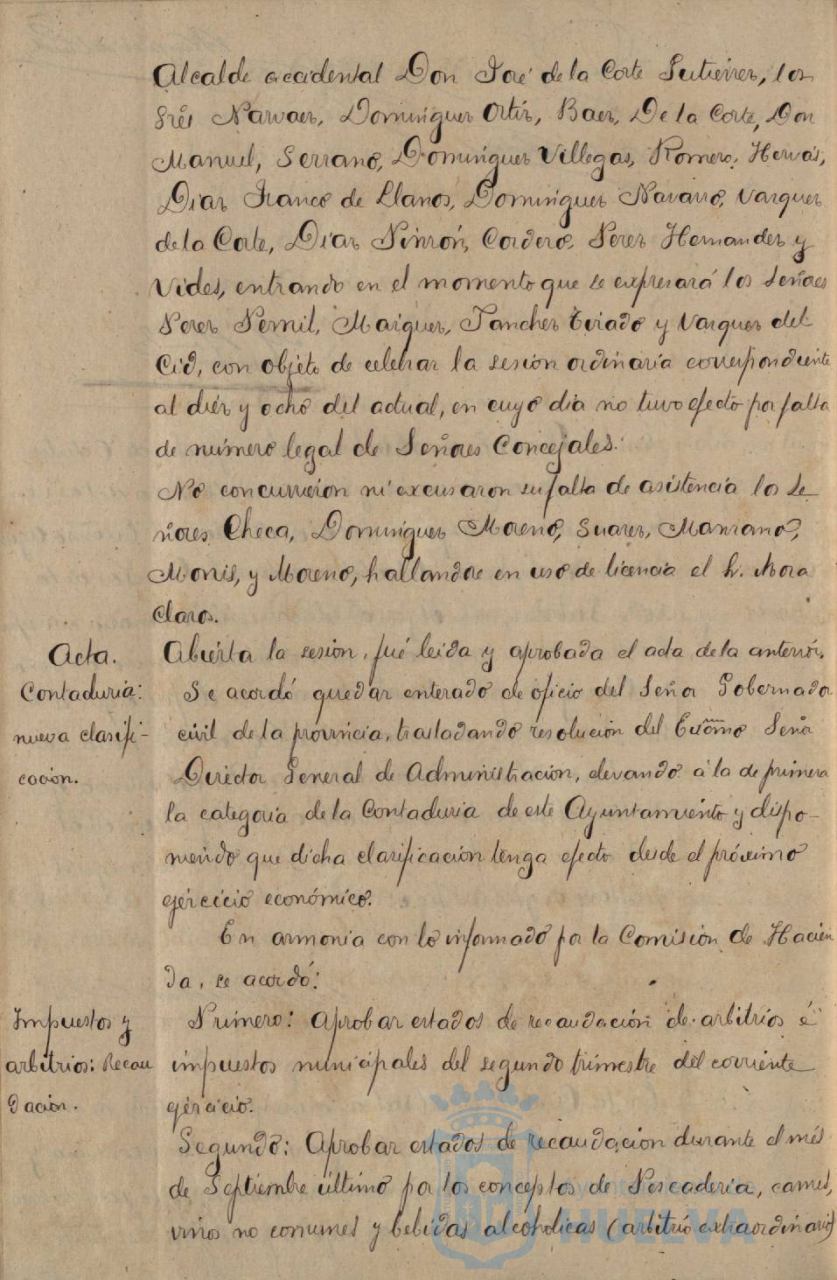 Alcalde accidental Don José de la Corte Gutierrez, los
Srēs Narvaez, Dominguez Ortiz, Baez, De la Corte, Don
Manuel, Serrano, Dominguez Villegas, Romero, Hervás,
Diaz Franco de Llanos, Dominguez Navarro, Vazquez
de la Corte, Diaz Pinzón, Cordero, Perez Hernandez y
Vides, entrando en el momento que se expresará los Señores
Perez Pernil, Maiquez, Sanchez Tirado y Vazquez del
Cid, con objeto de celebrar la sesión ordinaria correspondiente
al diez y ocho del actual, en cuyo dia no tuvo efecto por falta
de número legal de Señores Concejales.
No concurrieron ni excusaron su falta de asistencia los Se
ñores Checa, Dominguez Moreno, Suarez, Manzano,
Monis, y Moreno, hallandose en uso de licencia el Sr. Mora
Claros.
Acta.
Abierta la sesión, fué leida y aprobada el acta de la anterior.
Contaduria:
nueva clasifi-
cación.
Se acordó quedar enterado de oficio del Señor Gobernador
civil de la provincia, trasladando resolución del Excm̃o Señor
Director General de Administración, elevando á la de primera
la categoria de la Contaduria de este Ayuntamiento y dispo-
niendo que dicha clasificación tenga efecto desde el próximo
ejercicio económico.
En armonia con lo informado por la Comisión de Hacien
da, se acordó:
Impuestos y
arbitrios: Recau
dación.
Primero: Aprobar estados de recaudación de arbitrios é
impuestos municipales del segundo trimestre del corriente
ejercicio.
Segundo: Aprobar estados de recaudación durante el més
de Septiembre último por los conceptos de Pescaderia, carnes,
vinos no comunes y bebidas alcoholicas (arbitrio extraordinario)
HUELVA